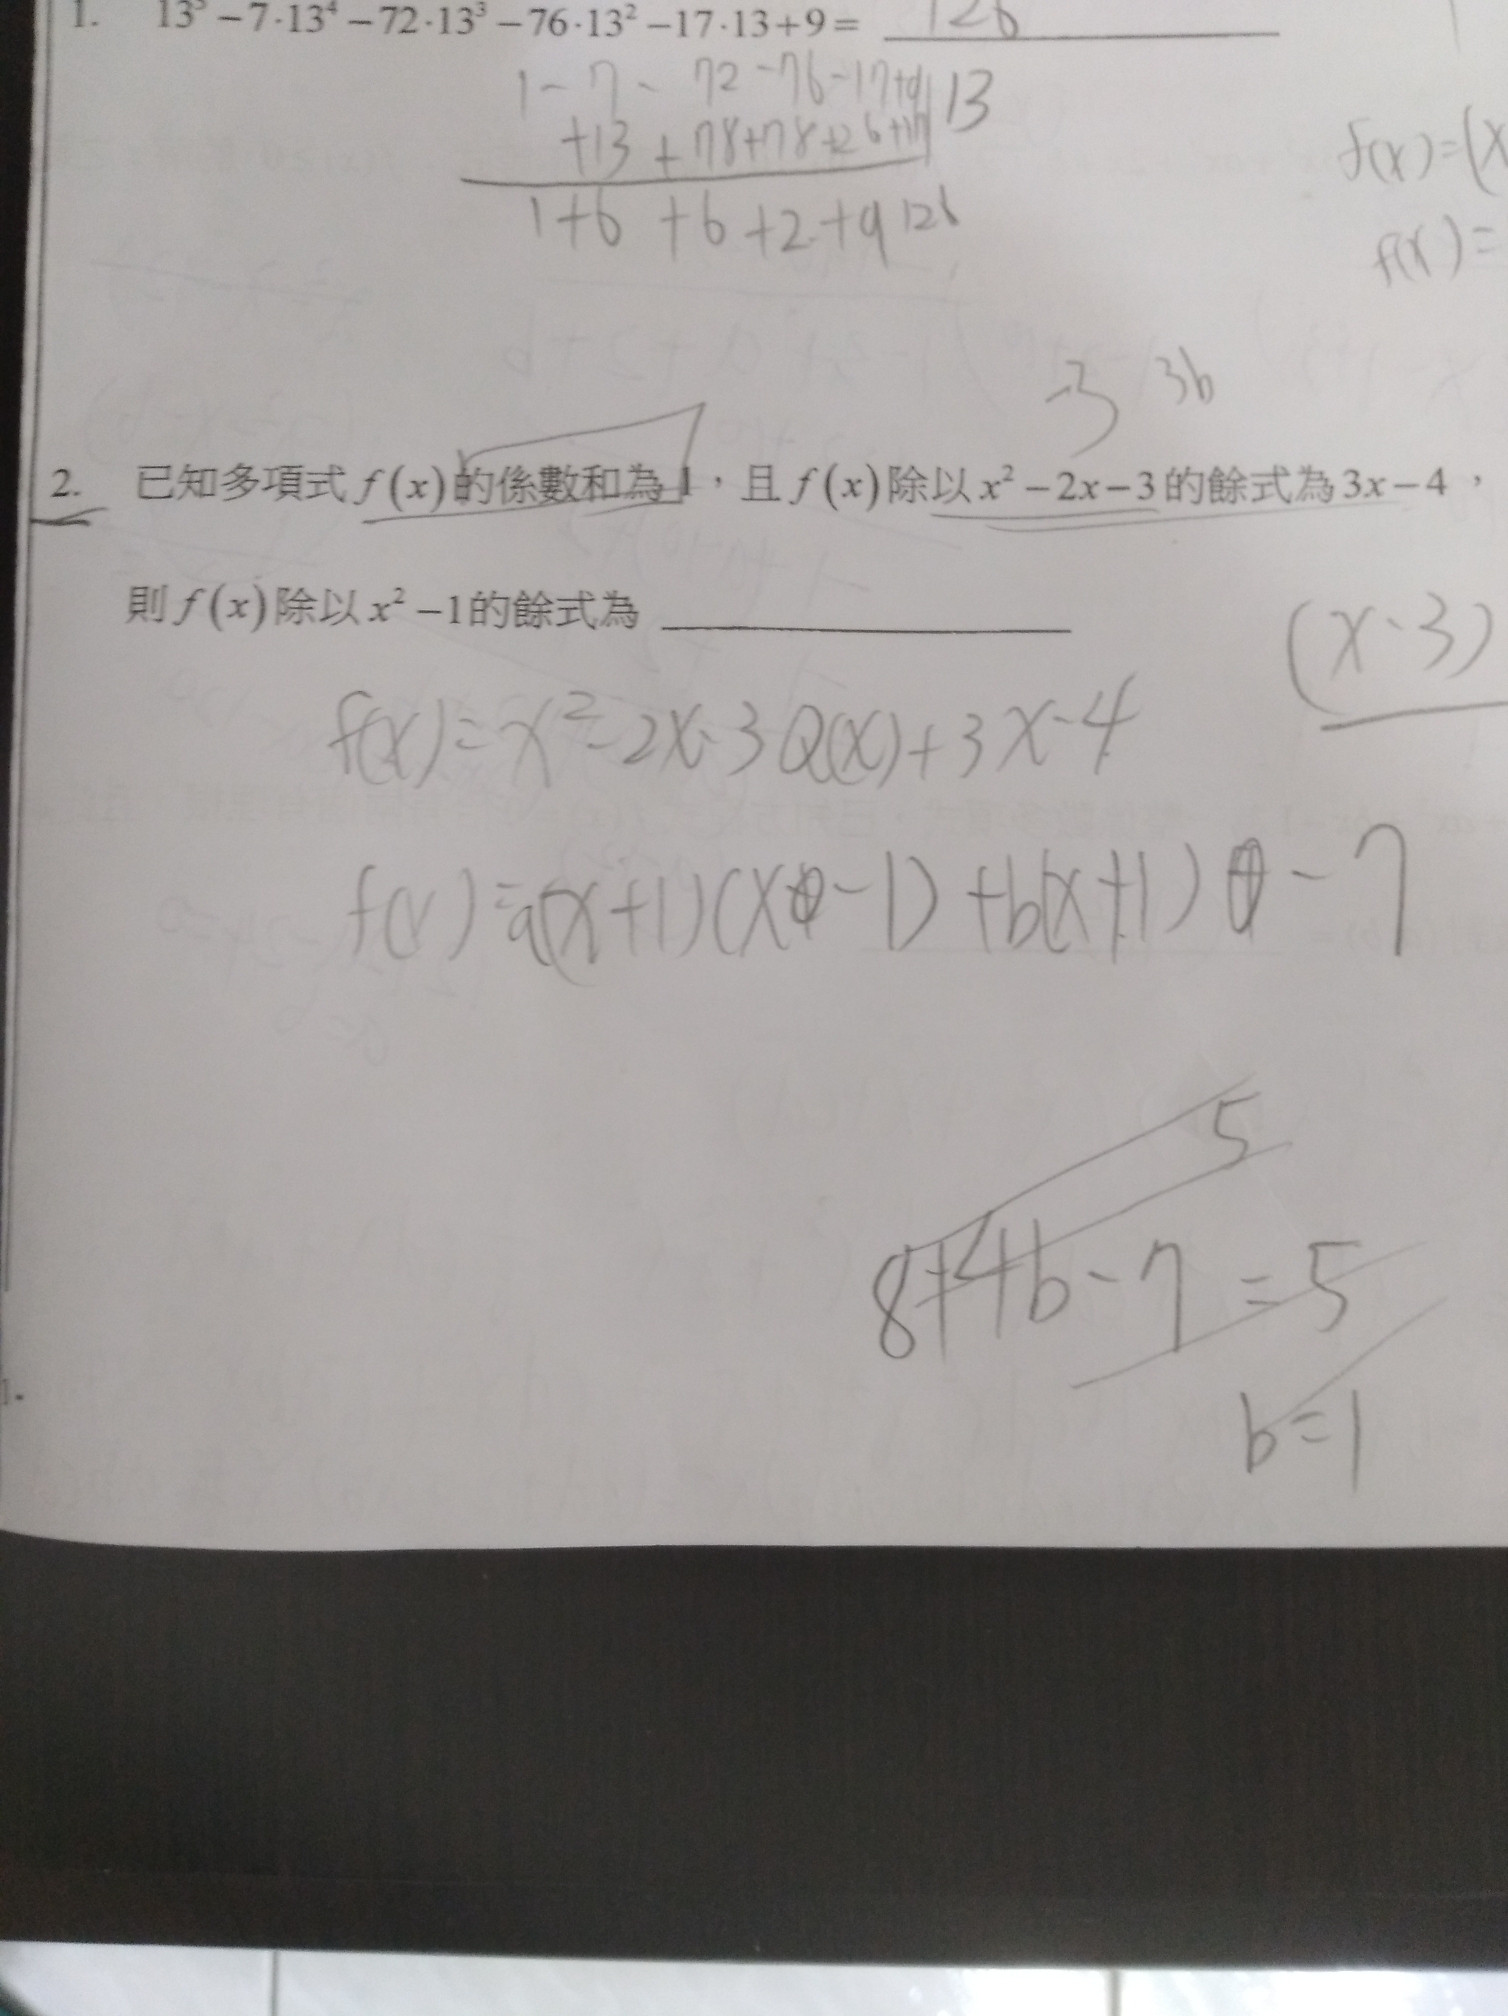 1. 13⁵−7·13⁴−72·13³−76·13²−17·13+9= 126
1-7-72-76-17+9 13
+13+78+78+26+117
f(x)=(x
1+6+6+2+9 126
f(x)=
-3 3b
2. 已知多項式f(x)的係數和為1,且f(x)除以x²−2x−3的餘式為3x−4,
則f(x)除以x²−1的餘式為
(x-3)
f(x)=x²-2x-3Q(x)+3x-4
f(x)=a(x+1)(x-1)+b(x+1)-7
5
8+4b-7=5
b=1